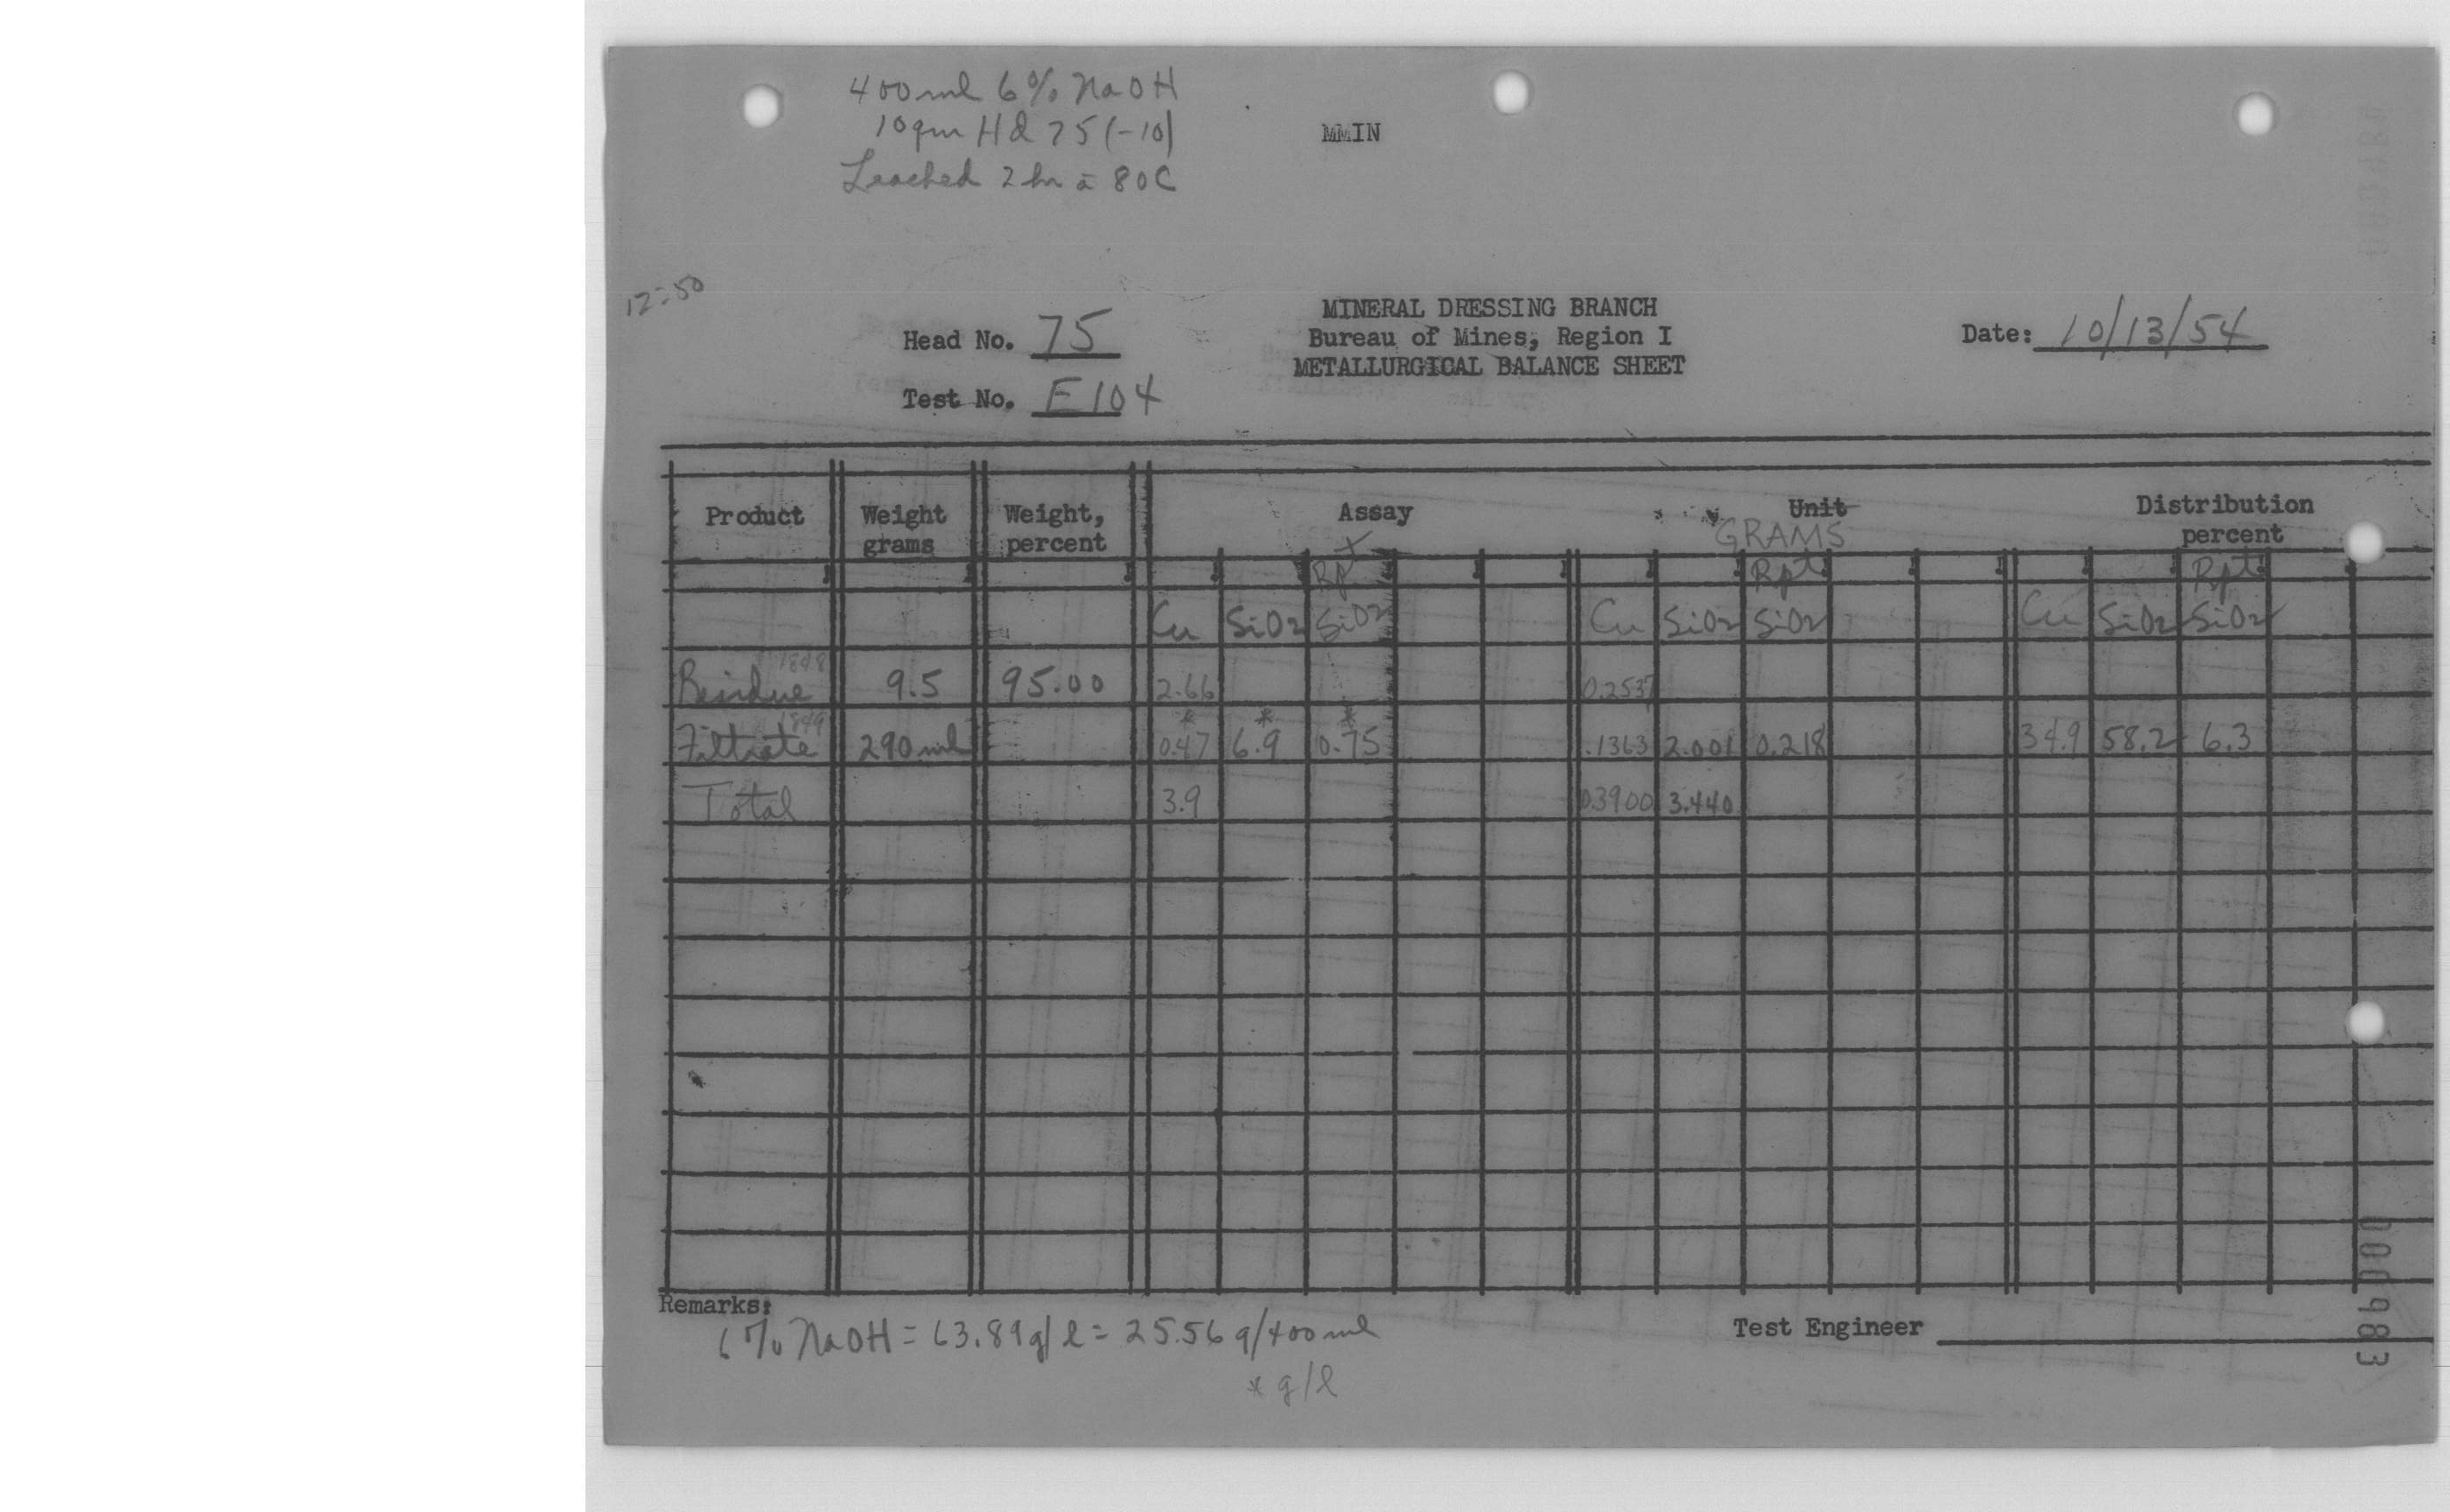 400 ml 6% NaOH
10 gm Hd 75 (-10)
Leached 2 hr a 80C
MMIN
12:50
MINERAL DRESSING BRANCH
Bureau of Mines, Region I
METALLURGICAL BALANCE SHEET
Head No. 75
Test No. E104
Date: 10/13/54
Product Weight grams Weight, percent Assay Unit GRAMS Distribution percent
Rpt Rpt Rpt
Cu SiO2 SiO2 Cu SiO2 SiO2 Cu SiO2 SiO2
Residue 1848 9.5 95.00 2.66 0.2537
Filtrate 1849 290 ml *0.47 *6.9 *0.75 .1363 2.001 0.218 34.9 58.2 6.3
Total 3.9 0.3900 3.440
Remarks:
6% NaOH = 63.89 g/l = 25.56 g/400 ml
* g/l
Test Engineer
000983